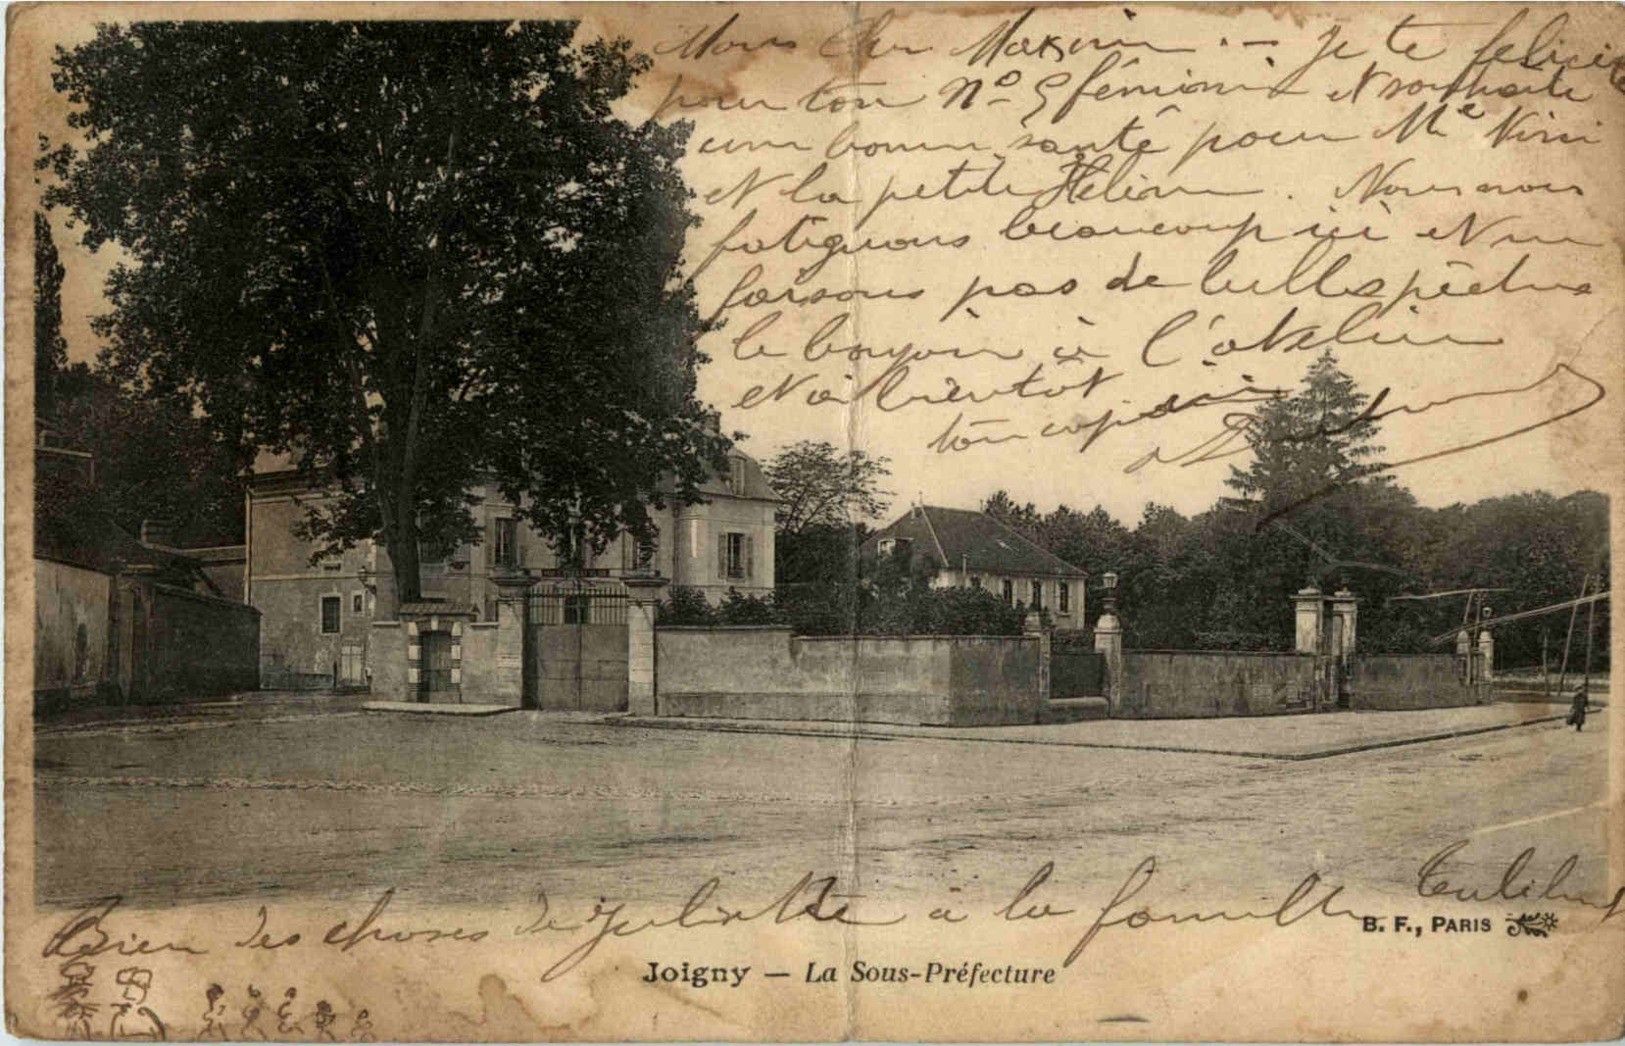 Mon cher Maxim. — Je te felicite
pour ton N° 5 féminin et souhaite
une bonne santé pour Me Nini
et la petite Hélène. Nous nous
fatiguons beaucoup ici et ne
faisons pas de bulles
le bonjour à l'atelier
et à bientôt
ton copain
Bien des choses de Juliette à la famille
B. F., PARIS
Joigny — La Sous-Préfecture